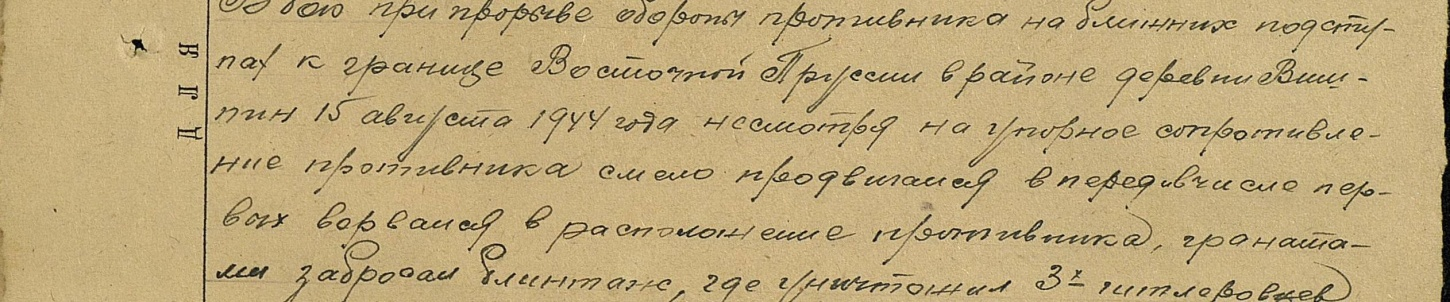 В бою при прорыве обороны противника на ближних подсту-
пах к границе Восточной Пруссии в районе деревни Виш-
пин 15 августа 1944 года несмотря на упорное сопротивле-
ние противника смело продвигался вперед в числе пер-
вых ворвался в расположение противника, граната-
ми забросал блиндаж, где уничтожил 3х гитлеровцев